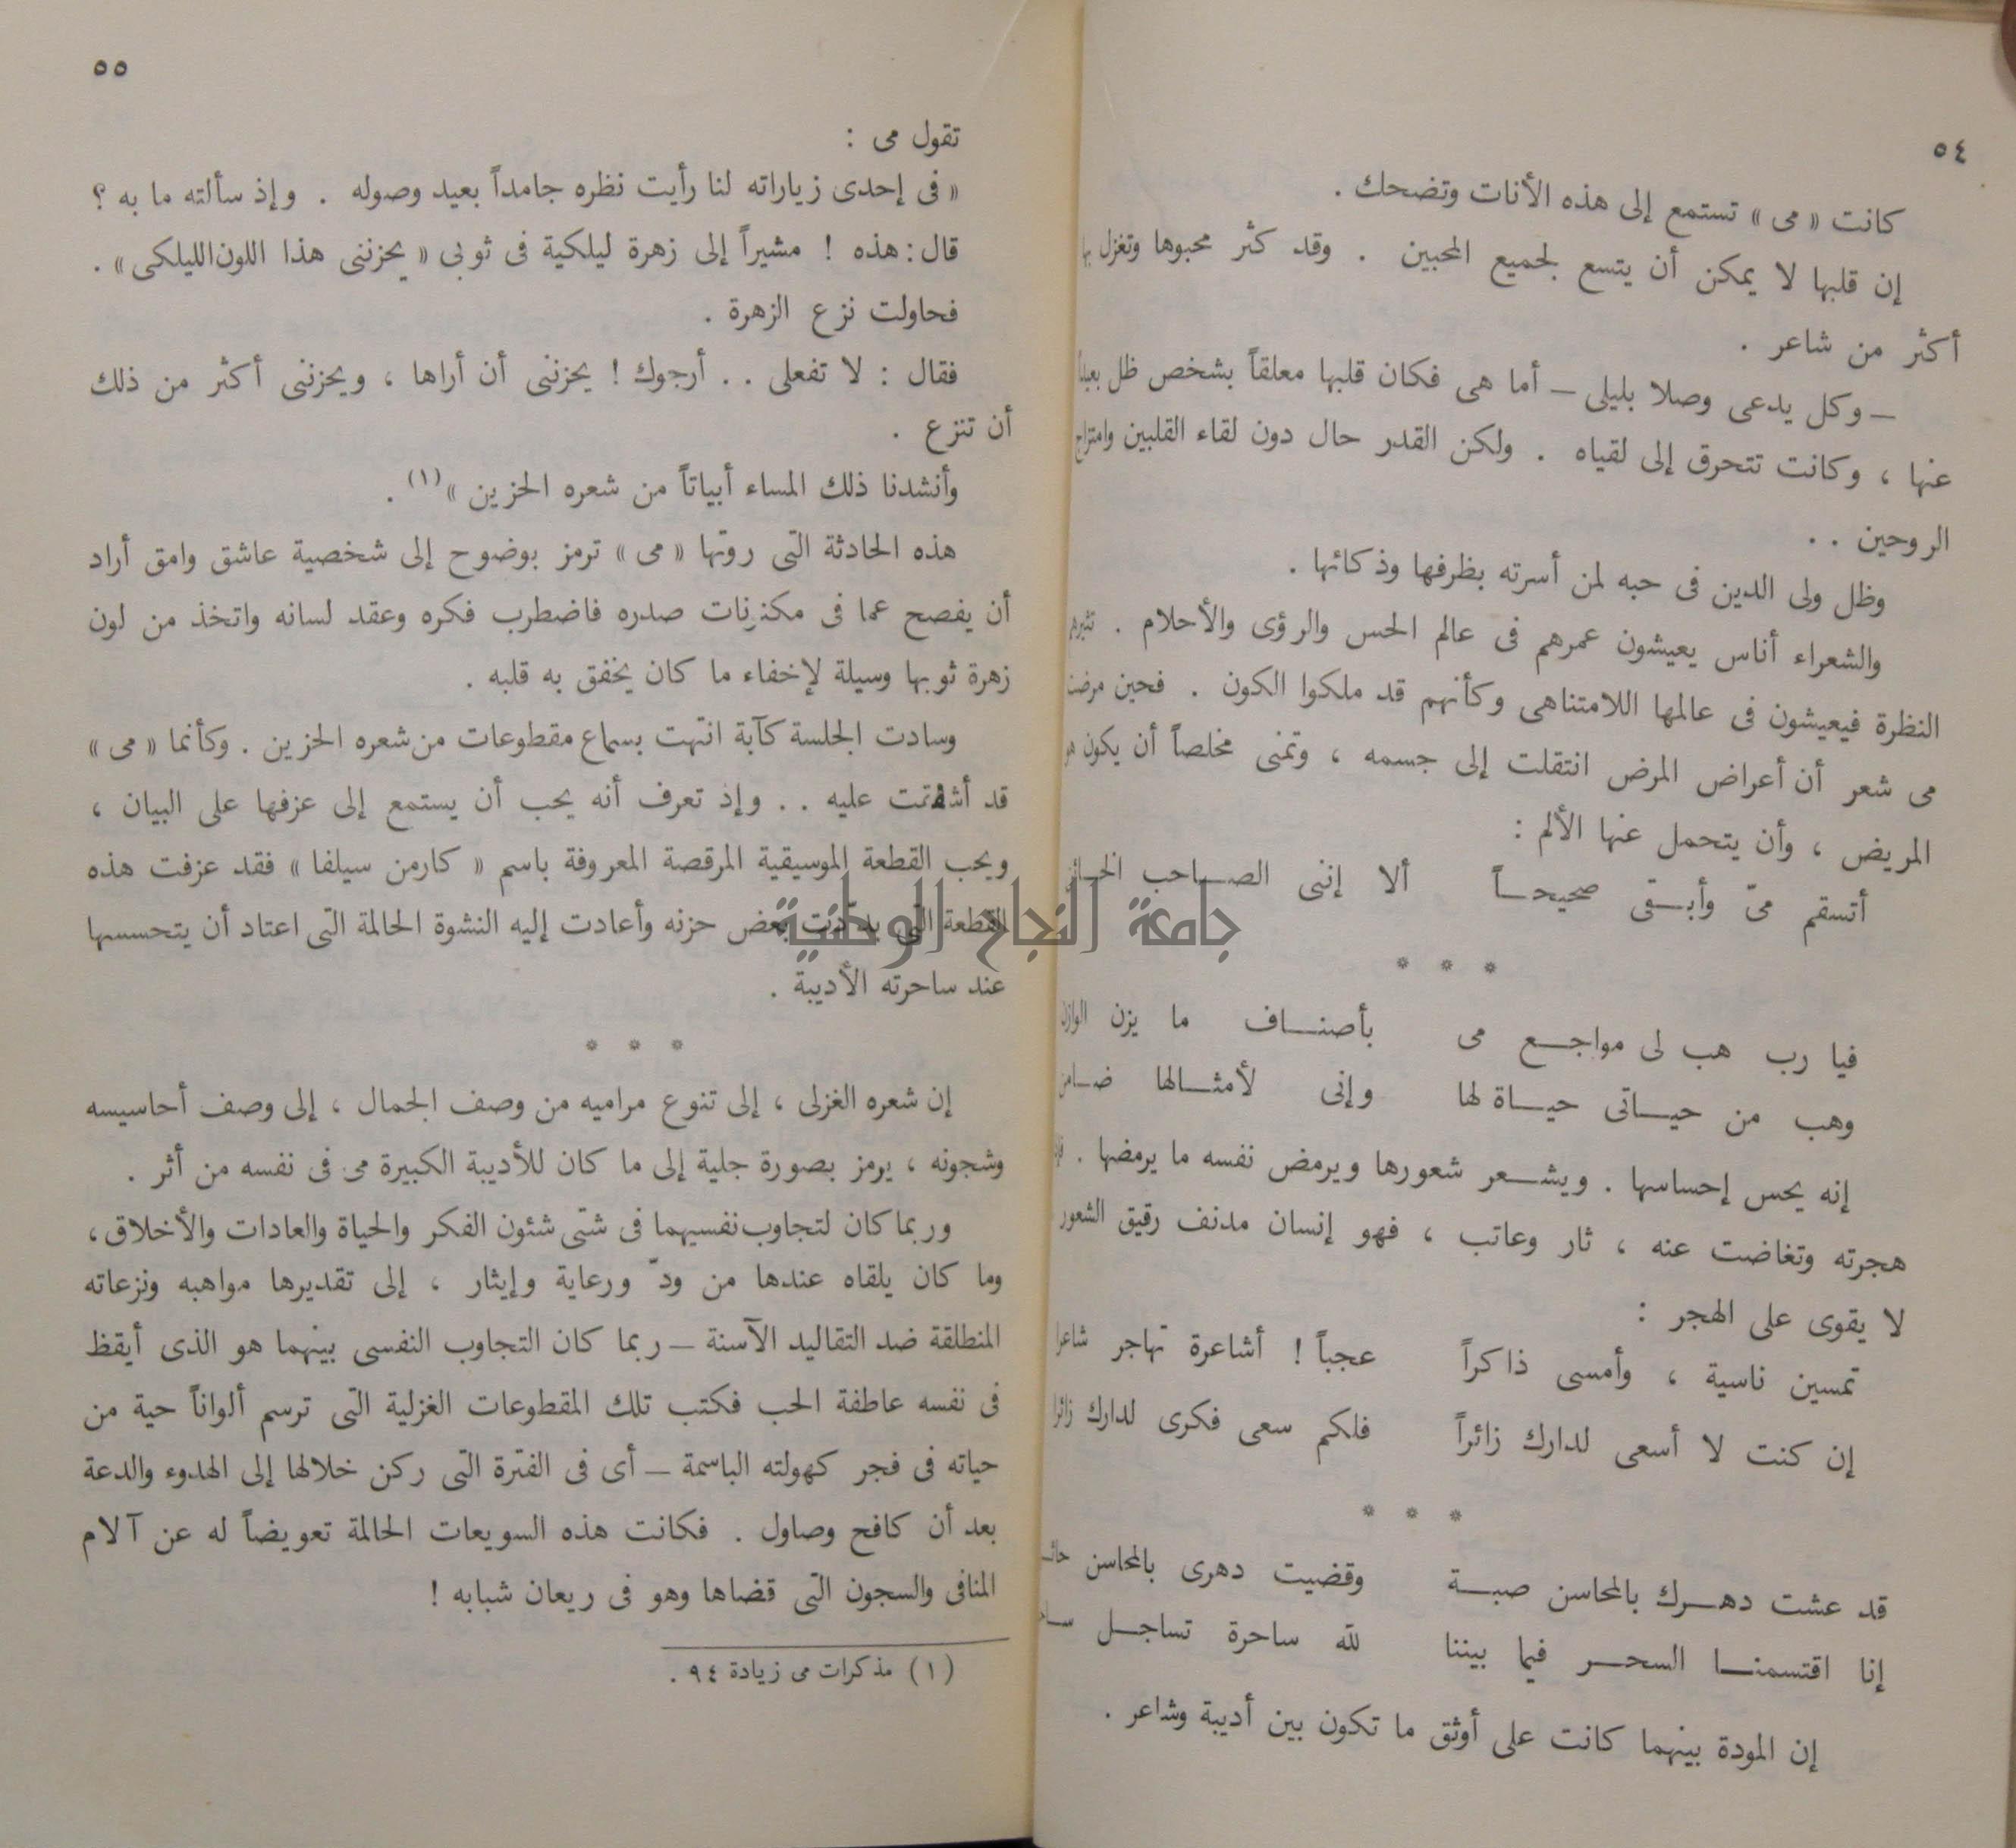 ٥٤
كانت « مى » تستمع إلى هذه الأنات وتضحك .
إن قلبها لا يمكن أن يتسع لجميع المحبين . وقد كثر محبوها وتغزل بها
أكثر من شاعر .
– وكل يدعى وصلا بليلى – أما هى فكان قلبها معلقاً بشخص ظل بعيداً
عنها ، وكانت تتحرق إلى لقياه . ولكن القدر حال دون لقاء القلبين وامتزاج
الروحين . .
وظل ولى الدين فى حبه لمن أسرته بظرفها وذكائها .
والشعراء أناس يعيشون عمرهم فى عالم الحس والرؤى والأحلام . تثيرهم
النظرة فيعيشون فى عالمها اللامتناهى وكأنهم قد ملكوا الكون . فحين مرضت
مى شعر أن أعراض المرض انتقلت إلى جسمه ، وتمنى مخلصاً أن يكون هو
المريض ، وأن يتحمل عنها الألم :
أتسقم مىّ وأبـقى صحيحـاً ألا إننى الصـاحب الخـائن
* * *
فيا رب هب لى مواجـع مى بأصنـاف ما يزن الوازن
وهب من حيـاتى حيـاة لها وإنى لأمثـالها ضـامن
إنه يحس إحساسها . ويشـعر شعورها ويرمض نفسه ما يرمضها .
هجرته وتغاضت عنه ، ثار وعاتب ، فهو إنسان مدنف رقيق الشعور
لا يقوى على الهجر :
تمسين ناسية ، وأمسى ذاكراً عجباً ! أشاعرة تهاجر شاعرا
إن كنت لا أسعى لدارك زائراً فلكم سعى فكرى لدارك زائرا
* * *
قد عشت دهـرك بالمحاسن صبـة وقضيت دهرى بالمحاسن
إنا اقتسمنـا السحـر فيما بيننا لله ساحرة تساجـل
إن المودة بينهما كانت على أوثق ما تكون بين أديبة وشاعر .
٥٥
تقول مى :
« فى إحدى زياراته لنا رأيت نظره جامداً بعيد وصوله . وإذ سألته ما به ؟
قال : هذه ! مشيراً إلى زهرة ليلكية فى ثوبى « يحزننى هذا اللون الليلكى » .
فحاولت نزع الزهرة .
فقال : لا تفعلى . . أرجوك ! يحزننى أن أراها ، ويحزننى أكثر من ذلك
أن تنزع .
وأنشدنا ذلك المساء أبياتاً من شعره الحزين » (١) .
هذه الحادثة التى روتها « مى » ترمز بوضوح إلى شخصية عاشق وامق أراد
أن يفصح عما فى مكنونات صدره فاضطرب فكره وعقد لسانه واتخذ من لون
زهرة ثوبها وسيلة لإخفاء ما كان يخفق به قلبه .
وسادت الجلسة كآبة انتهت بسماع مقطوعات من شعره الحزين . وكأنما « مى »
قد أشفقت عليه . . وإذ تعرف أنه يحب أن يستمع إلى عزفها على البيان ،
ويحب القطعة الموسيقية المرقصة المعروفة باسم « كارمن سيلفا » فقد عزفت هذه
القطعة التى بدّدت بعض حزنه وأعادت إليه النشوة الحالمة التى اعتاد أن يتحسسها
عند ساحرته الأديبة .
جامعة النجاح الوطنية
* * *
إن شعره الغزلى ، إلى تنوع مراميه من وصف الجمال ، إلى وصف أحاسيسه
وشجونه ، يرمز بصورة جلية إلى ما كان للأديبة الكبيرة مى فى نفسه من أثر .
وربما كان لتجاوب نفسيهما فى شتى شئون الفكر والحياة والعادات والأخلاق ،
وما كان يلقاه عندها من ودّ ورعاية وإيثار ، إلى تقديرها مواهبه ونزعاته
المنطلقة ضد التقاليد الآسنة – ربما كان التجاوب النفسى بينهما هو الذى أيقظ
فى نفسه عاطفة الحب فكتب تلك المقطوعات الغزلية التى ترسم ألواناً حية من
حياته فى فجر كهولته الباسمة – أى فى الفترة التى ركن خلالها إلى الهدوء والدعة
بعد أن كافح وصاول . فكانت هذه السويعات الحالمة تعويضاً له عن آلام
المنافى والسجون التى قضاها وهو فى ريعان شبابه !
(١) مذكرات مى زيادة ٩٤ .